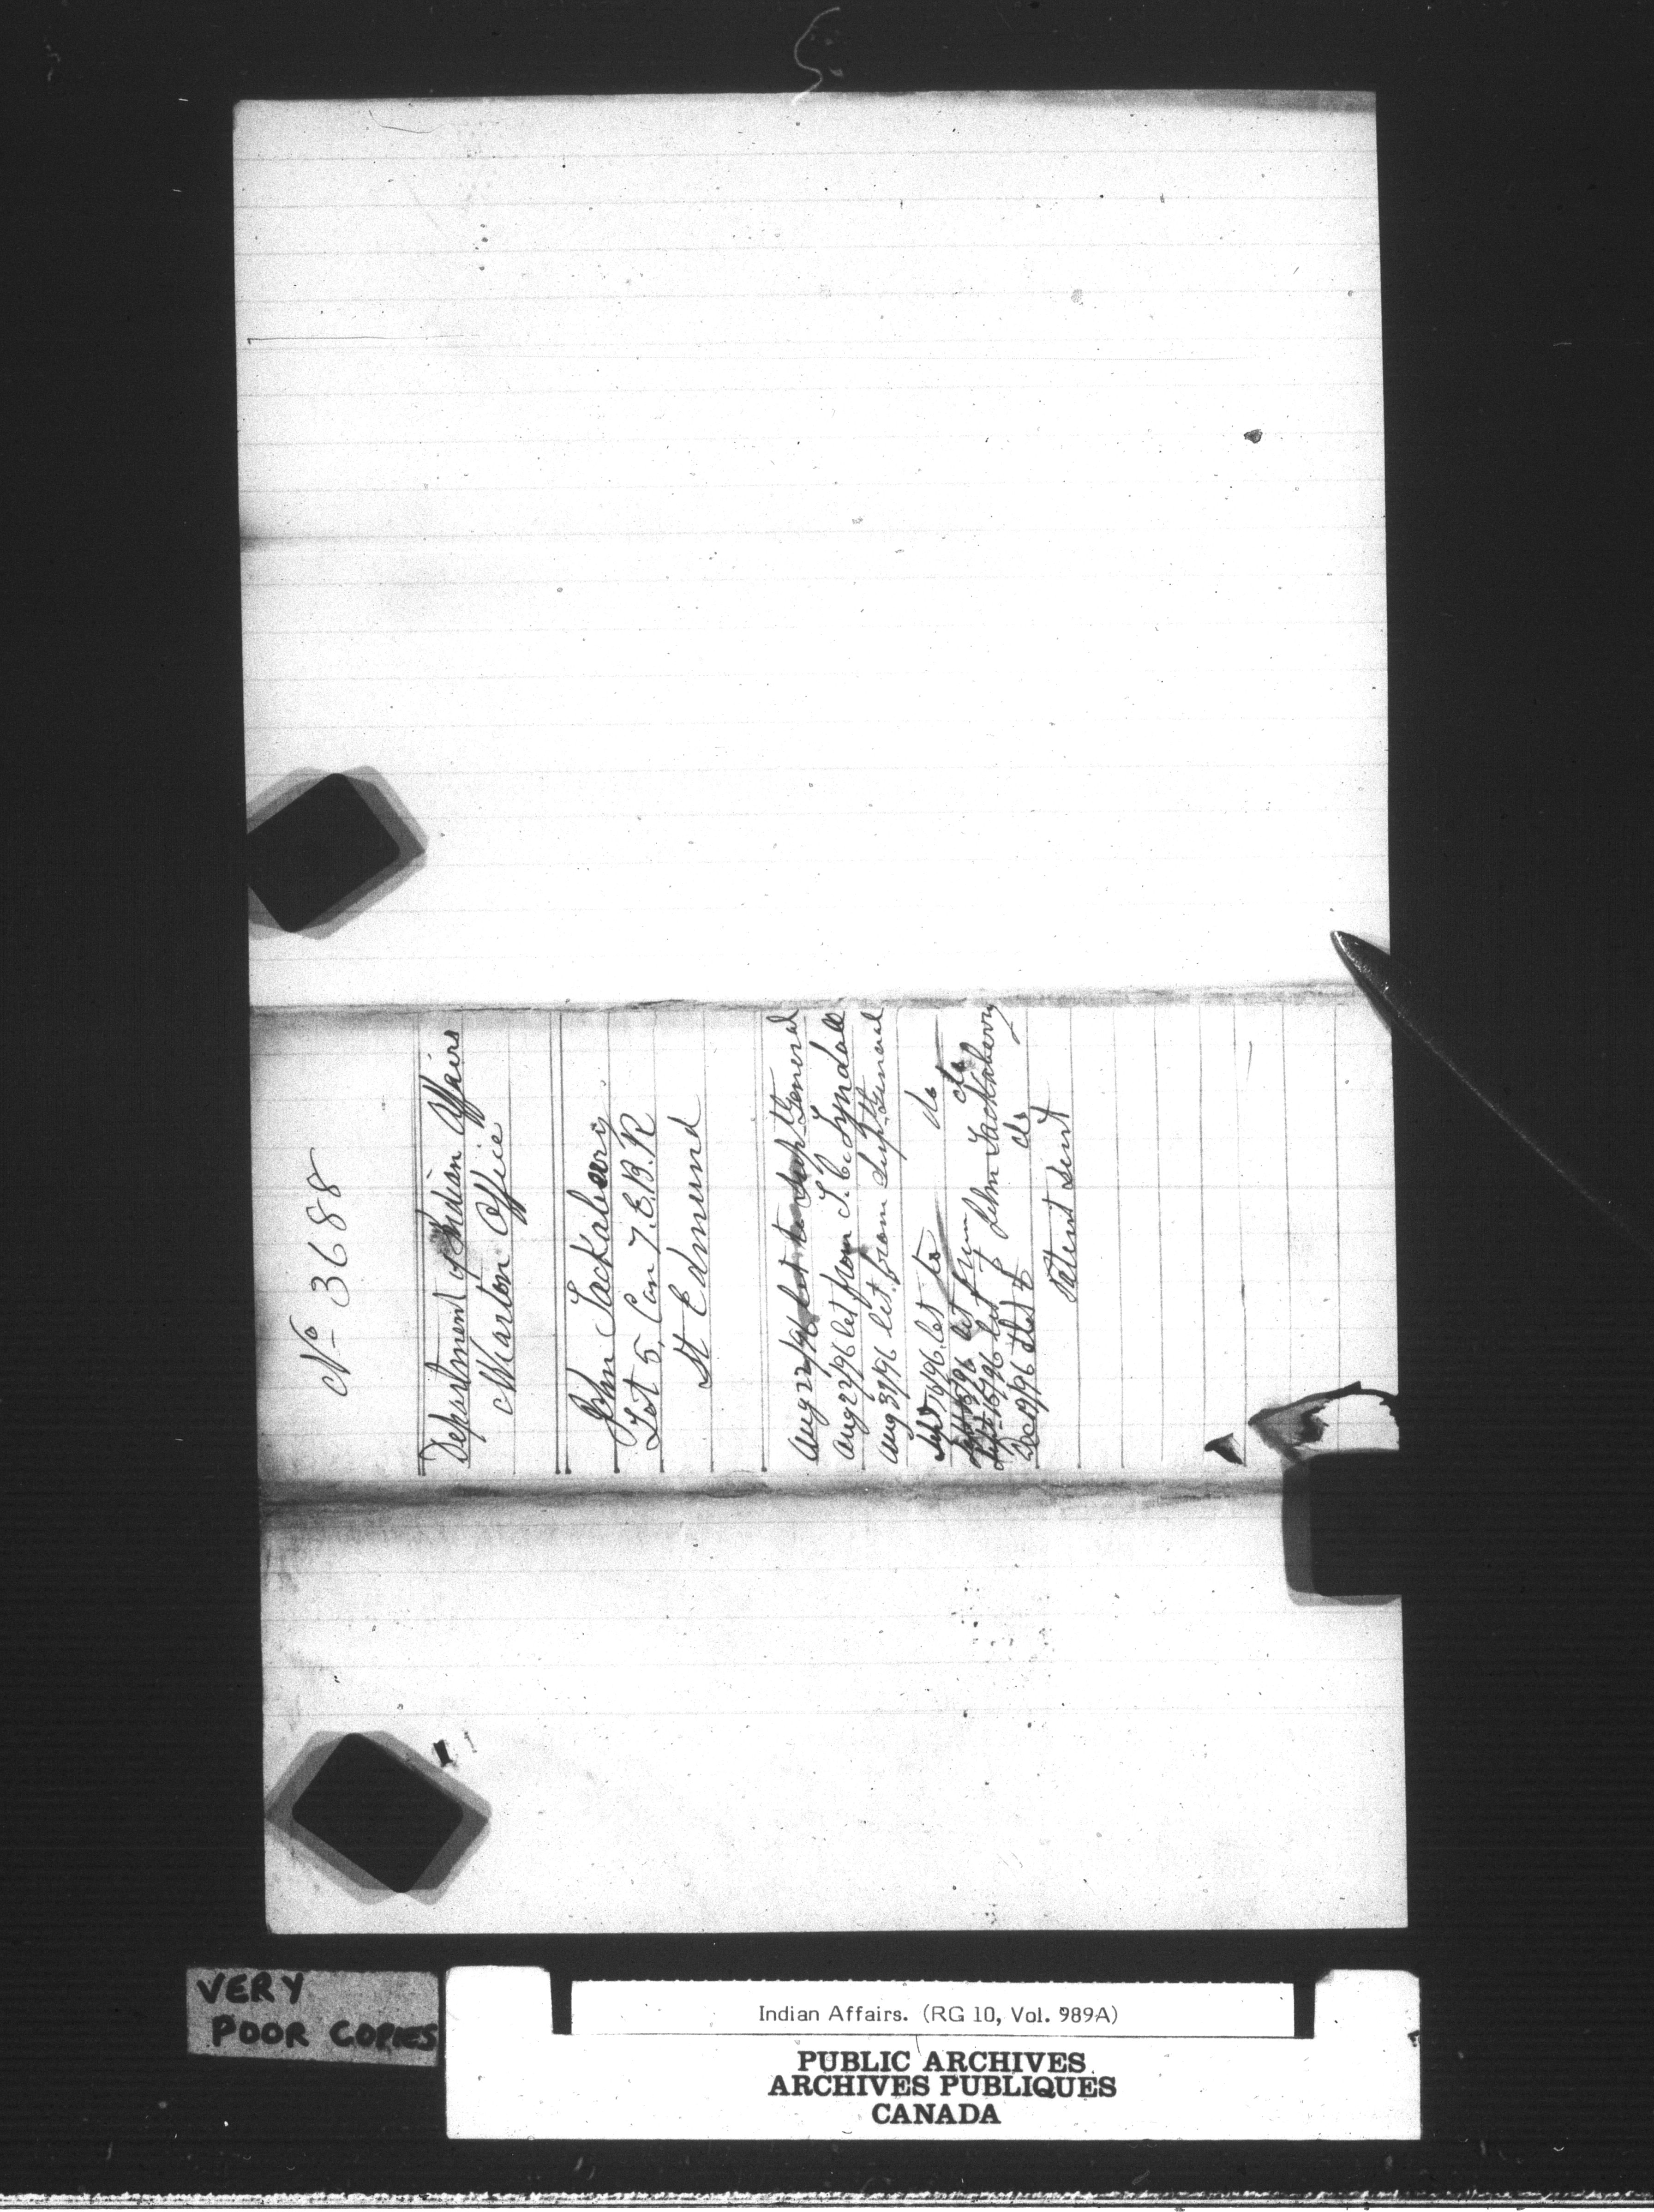 No 3688
Department of Indian Affairs
Wiarton Office
John Jackaberry
Lot 5, Con 7. E.B.R
St Edmund
Aug 22/96 let to Supt General
Aug 27/96 let from T. C. Tyndall
Aug 31/96 let from Supt General
Sept 7/96 let to do
Sept 15/96 let from do
Sept 15/96 let to John Jackaberry
Dec 19/96 do
Patent sent
VERY
POOR COPIES
Indian Affairs. (RG 10, Vol. 989A)
PUBLIC ARCHIVES
ARCHIVES PUBLIQUES
CANADA